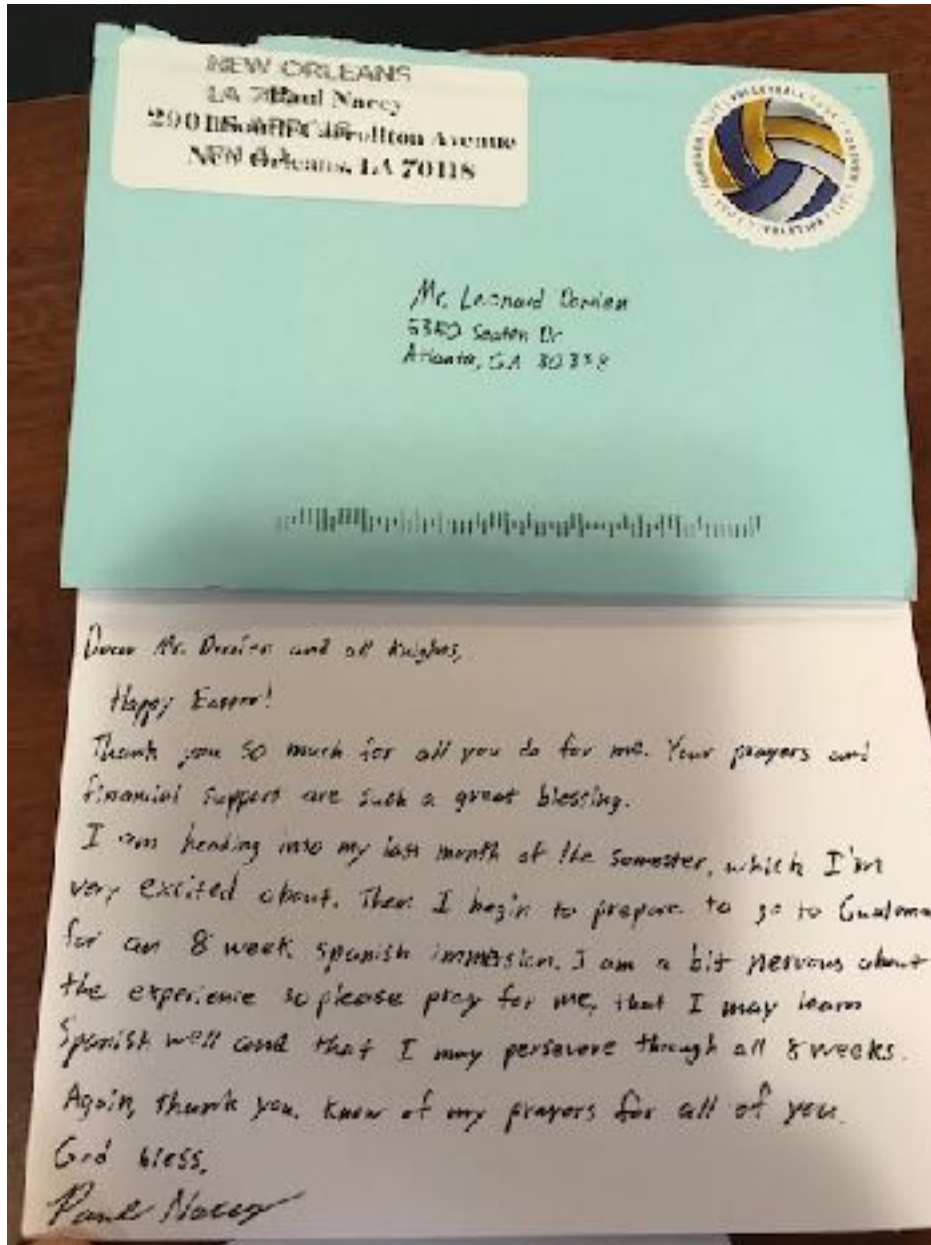 NEW ORLEANS
LA Paul Nacey
2901 South Carrollton Avenue
New Orleans, LA 70118
VOLLEYBALL FOREVER USA
Mr. Leonard
Dr
Atlanta, GA 30338
Dear Mr. and all Knights,
Happy Easter!
Thank you so much for all you do for me. Your prayers and
financial support are such a great blessing.
I am heading into my last month of the semester, which I'm
very excited about. Then I begin to prepare to go to Guatema
for an 8 week Spanish immersion. I am a bit nervous about
the experience so please pray for me, that I may learn
Spanish well and that I may persevere through all 8 weeks.
Again, thank you. Know of my prayers for all of you.
God bless,
Paul Nacey